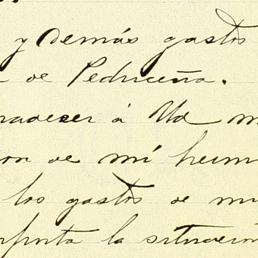 y demás gastos
de Pedriceña.
radecer á Ud m
on de mí heim
los gastos de mi
porta la situación